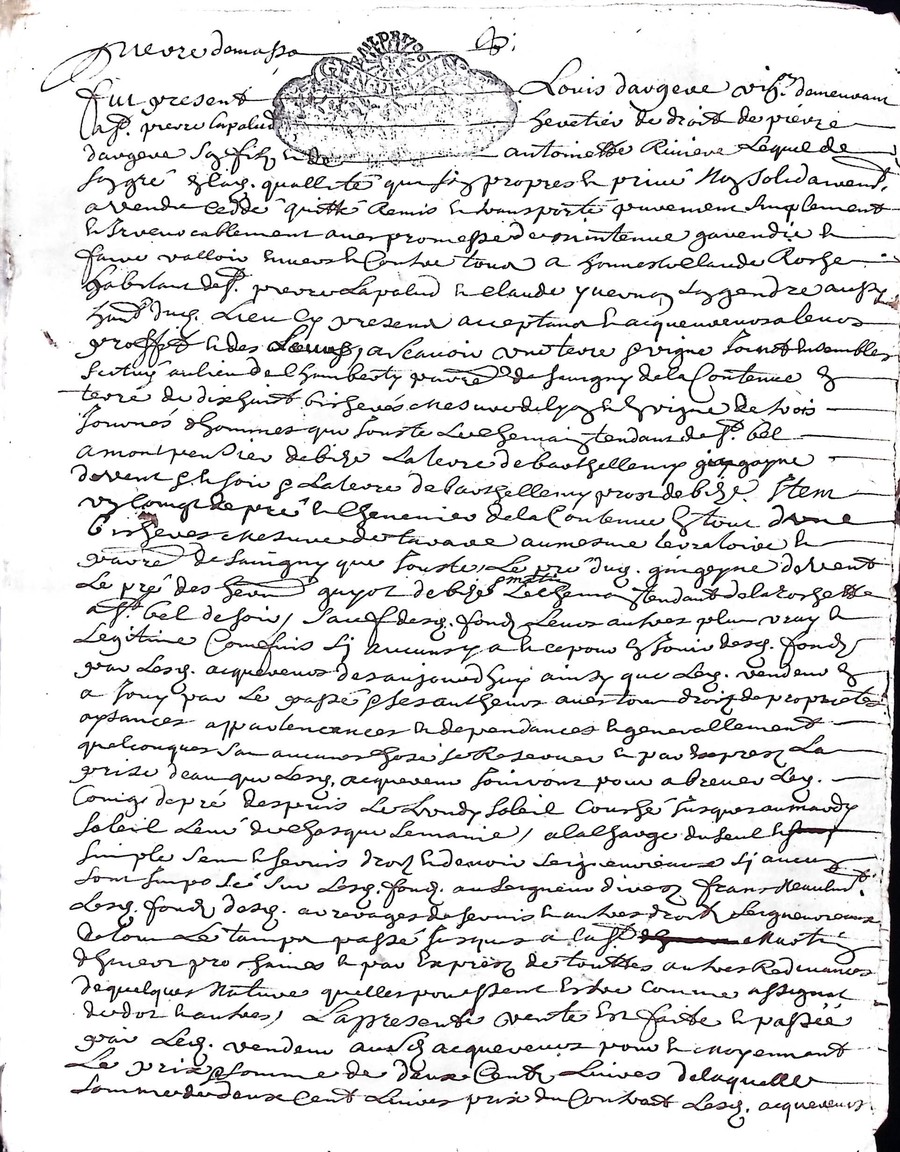 fut present Louis dargere vig.on demeurant
a St. pierre lapalud heretier de droit de pierre
dargere son filz et de antoinette Riviere Lequel de
son gré quallité que son propre et privé Nom Solidairement
a vendu Ceddé quitté Remis et transporté purement simplement
et Irrevocablement avec promesse de maintenue garendie et
faire valloir envers et Contre tous a honneste Claude Roche
habitant de St. pierre Lapalud et Claude yvernay son gendre aussy
hant. dud. Lieu Ley present acceptant et acquereurs a leurs
proffit et des Leurs, a scavoir une terre et vigne Joint Ensembles
Scitués au lieu de lhumberty parre. de Savigny de la Contenue
terre de dixhuict bicherés mesure de lyon et vigne de trois
Journés dhommes que Jouste Le Chemain tendant de St. bel
a montpensier de bize La terre de barthellemy gingogne
devent et soir La terre de barthellemy prost de bize Item
un Coing de pré et Chenevier de la Contenue En tout dune
bicherés mesure de tarare au mesme terratoire et
parre. de Savigny que Jouste Le pré dud. gingogne de vent
Le pré des guyot de bize matin Le Chemain tendant de la Rochette
a St. bel de soir, sauf desd. fondz Leurs autres plus vray et
Legitime Confins sy aucuns y a et ce pour En Jouir desd. fondz
par Lesd. acquereurs des aujourdhuy ainsy que Led. vendeur En
a Jouy par Le passé et ses autheurs avec tous droitz de proprietés
aysances appartenances et dependances et generallement
quelconques san aucune chose se Reserver et par Exprez La
prise deau que Lesd. acquereurs pour abrever Led.
Coing de pré despuis Le Lundy soleil Couché Jusques au mardy
soleil Levé de Chasque semaine, a la Charge du seul et
simple Cens et servis droitz et devoir seigneuriaux sy aucun
sont Imposés sur Lesd. fondz au seigneur divers franc Neaulmt.
Lesd. fondz desd. arrerages de servis et autres droitz seigneuriaux
de tout Le temps passé Jusques a la St. Martin
dhiver prochaine et par Exprez de touttes autres Redevances
de quelques Nature quelles puissent Estre Comme assignat
de dot et autres, La presente vente Est faite et passée
par Led. vendeur ausd. acquereurs pour et moyennant
Le prix et somme de deux Centz Livres de laquelle
somme de deux Cent Livres prix du Contrait Lesd. acquereurs